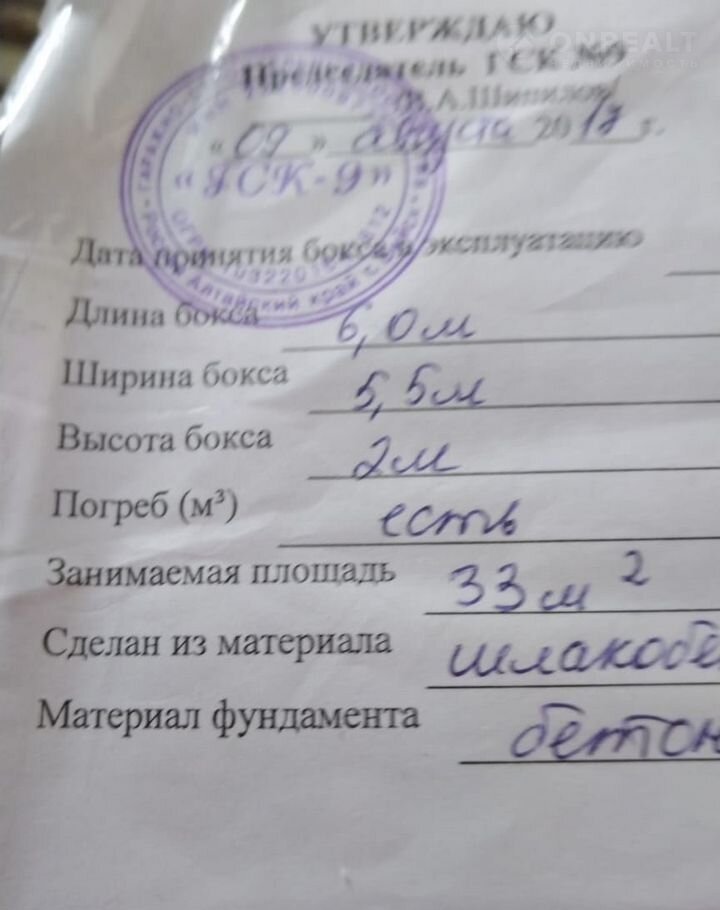 УТВЕРЖДАЮ
ONREALT
недвижимость
Председатель ГСК №9
В.А.Шипилов/
« 09 » августа 2017 г.
«ГСК-9»
Алтайский край
Дата принятия бокса в эксплуатацию
Длина бокса 6,0м
Ширина бокса 5,5м
Высота бокса 2м
Погреб (м³) есть
Занимаемая площадь 33м²
Сделан из материала шлакобе
Материал фундамента бетон